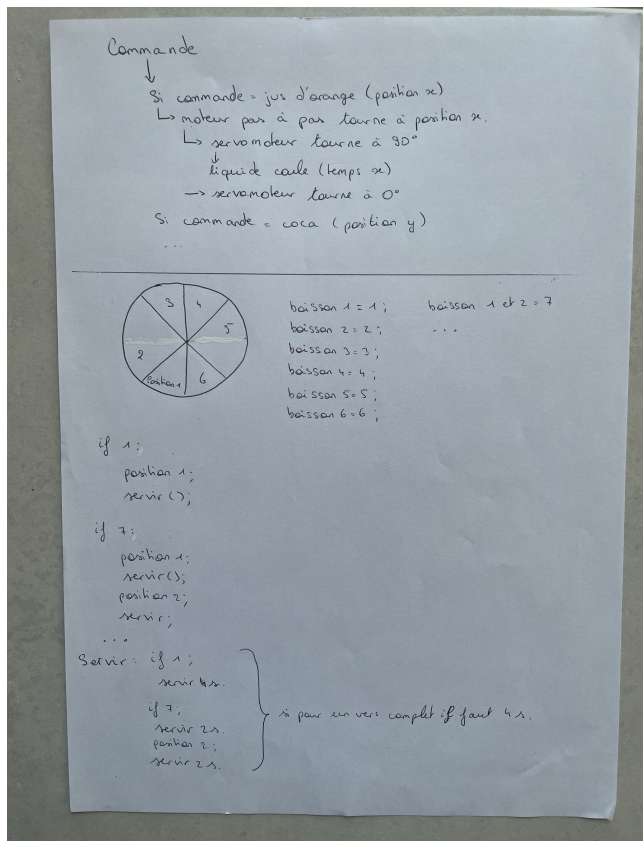 Commande
↓
Si commande = jus d'orange (position x)
↳ moteur pas à pas tourne à position x.
↳ servomoteur tourne à 90°
↓
liquide coule (temps x)
→ servomoteur tourne à 0°
Si commande = coca (position y)
...
3 4
2 5
Position 1 6
boisson 1 = 1 ;
boisson 2 = 2 ;
boisson 3 = 3 ;
boisson 4 = 4 ;
boisson 5 = 5 ;
boisson 6 = 6 ;
boisson 1 et 2 = 7
...
if 1 ;
position 1 ;
servir () ;
if 7 ;
position 1 ;
servir() ;
position 2 ;
servir ;
...
Servir : if 1 ;
servir 4s.
if 7 ;
servir 2s.
position 2 ;
servir 2s.
si pour un vers complet if faut 4s.